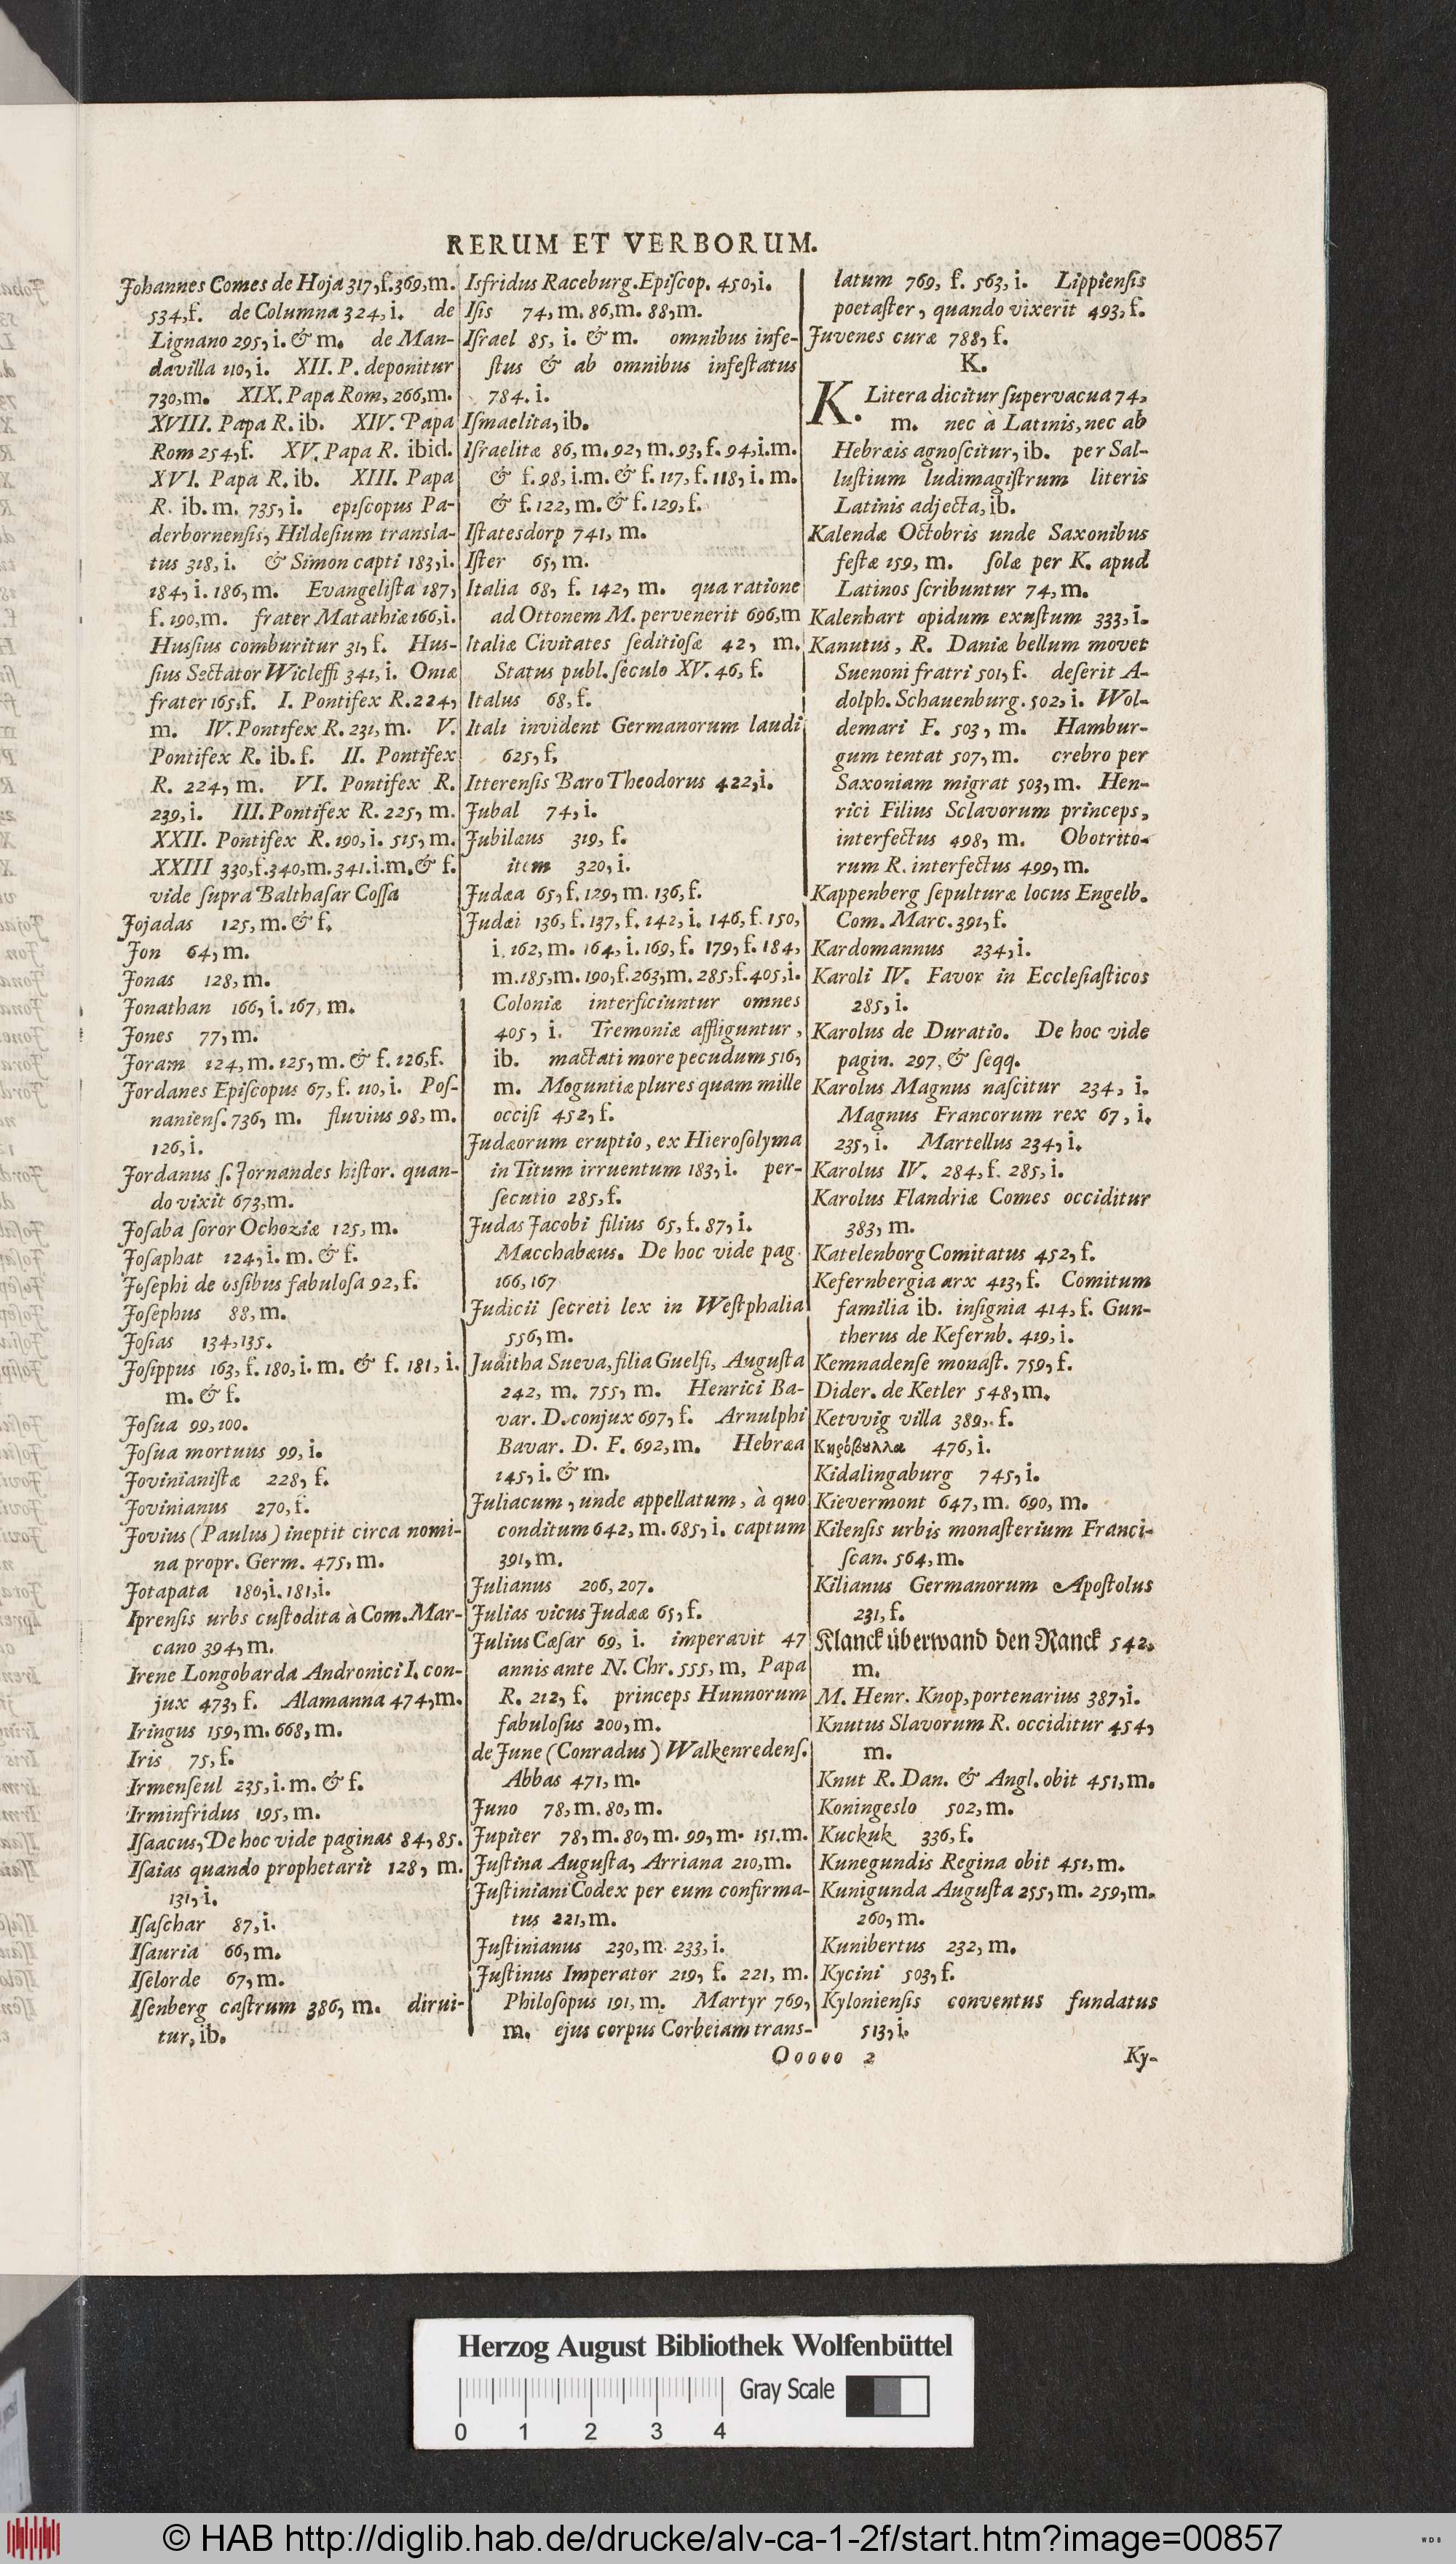 RERUM ET VERBORUM.
Johannes Comes de Hoja 317, f. 369, m.
534, f. de Columna 324, i. de
Lignano 295, i. & m. de Man-
davilla 110, i. XII. P. deponitur
730, m. XIX. Papa Rom, 266, m.
XVIII. Papa R. ib. XIV. Papa
Rom 254, f. XV. Papa R. ibid.
XVI. Papa R. ib. XIII. Papa
R. ib. m. 735, i. episcopus Pa-
derbornensis, Hildesium transla-
tus 318, i. & Simon capti 183, i.
184, i. 186, m. Evangelista 187,
f. 190, m. frater Matathiæ 166, i.
Hussius comburitur 31, f. Hus-
sius Sectator Wicleffi 341, i. Oniæ
frater 165, f. I. Pontifex R. 224,
m. IV. Pontifex R. 231, m. V.
Pontifex R. ib. f. II. Pontifex
R. 224, m. VI. Pontifex R.
239, i. III. Pontifex R. 225, m.
XXII. Pontifex R. 190, i. 515, m.
XXIII 330, f. 340, m. 341. i. m. & f.
vide supra Balthasar Cossa
Jojadas 125, m. & f.
Jon 64, m.
Jonas 128, m.
Jonathan 166, i. 167, m.
Jones 77, m.
Joram 124, m. 125, m. & f. 126, f.
Jordanes Episcopus 67, f. 110, i. Pos-
naniens. 736, m. fluvius 98, m.
126, i.
Jordanus s. Jornandes histor. quan-
do vixit 673, m.
Josaba soror Ochoziæ 125, m.
Josaphat 124, i. m. & f.
Josephi de ossibus fabulosa 92, f.
Josephus 88, m.
Josias 134, 135.
Josippus 163, f. 180, i. m. & f. 181, i.
m. & f.
Josua 99, 100.
Josua mortuus 99, i.
Jovinianistæ 228, f.
Jovinianus 270, f.
Jovius (Paulus) ineptit circa nomi-
na propr. Germ. 475, m.
Jotapata 180, i. 181, i.
Iprensis urbs custodita à Com. Mar-
cano 394, m.
Irene Longobarda Andronici I. con-
jux 473, f. Alamanna 474, m.
Iringus 159, m. 668, m.
Iris 75, f.
Irmenseul 235, i. m. & f.
Irminfridus 195, m.
Isaacus, De hoc vide paginas 84, 85.
Isaias quando prophetarit 128, m.
131, i.
Isaschar 87, i.
Isauria 66, m.
Iselorde 67, m.
Isenberg castrum 386, m. dirui-
tur, ib.
Isfridus Raceburg. Episcop. 450, i.
Isis 74, m. 86, m. 88, m.
Israel 85, i. & m. omnibus infe-
stus & ab omnibus infestatus
784. i.
Ismaelita, ib.
Israelitæ 86, m. 92, m. 93, f. 94, i. m.
& f. 98, i. m. & f. 117, f. 118, i. m.
& f. 122, m. & f. 129, f.
Istatesdorp 741, m.
Ister 65, m.
Italia 68, f. 142, m. qua ratione
ad Ottonem M. pervenerit 696, m
Italiæ Civitates seditiosæ 42, m.
Status publ. seculo XV. 46, f.
Italus 68, f.
Itali invident Germanorum laudi
625, f,
Itterensis Baro Theodorus 422, i.
Jubal 74, i.
Jubilæus 319, f.
item 320, i.
Judæa 65, f. 129, m. 136, f.
Judæi 136, f. 137, f. 142, i. 146, f. 150,
i. 162, m. 164, i. 169, f. 179, f. 184,
m. 185, m. 190, f. 263, m. 285, f. 405, i.
Coloniæ interficiuntur omnes
405, i. Tremoniæ affliguntur,
ib. mactati more pecudum 516,
m. Moguntiæ plures quam mille
occisi 452, f.
Judæorum eruptio, ex Hierosolyma
in Titum irruentum 183, i. per-
secutio 285, f.
Judas Jacobi filius 65, f. 87, i.
Macchabæus. De hoc vide pag.
166, 167
Judicii secreti lex in Westphalia
556, m.
Juditha Sueva, filia Guelfi, Augusta
242, m. 755, m. Henrici Ba-
var. D. conjux 697, f. Arnulphi
Bavar. D. F. 692, m. Hebræa
145, i. & m.
Juliacum, unde appellatum, à quo
conditum 642, m. 685, i. captum
391, m.
Julianus 206, 207.
Julias vicus Judææ 65, f.
Julius Cæsar 69, i. imperavit 47
annis ante N. Chr. 555, m, Papa
R. 212, f. princeps Hunnorum
fabulosus 200, m.
de June (Conradus) Walkenredens.
Abbas 471, m.
Juno 78, m. 80, m.
Jupiter 78, m. 80, m. 99, m. 151. m.
Justina Augusta, Arriana 210, m.
Justiniani Codex per eum confirma-
tus 221, m.
Justinianus 230, m. 233, i.
Justinus Imperator 219, f. 221, m.
Philosopus 191, m. Martyr 769,
m. ejus corpus Corbeiam trans-
latum 769, f. 563, i. Lippiensis
poetaster, quando vixerit 493, f.
Juvenes curæ 788, f.
K.
K. Litera dicitur supervacua 74,
m. nec à Latinis, nec ab
Hebræis agnoscitur, ib. per Sal-
lustium ludimagistrum literis
Latinis adjecta, ib.
Kalendæ Octobris unde Saxonibus
festæ 159, m. solæ per K. apud
Latinos scribuntur 74, m.
Kalenhart opidum exustum 333, i.
Kanutus, R. Daniæ bellum movet
Suenoni fratri 501, f. deserit A-
dolph. Schauenburg. 502, i. Wol-
demari F. 503, m. Hambur-
gum tentat 507, m. crebro per
Saxoniam migrat 503, m. Hen-
rici Filius Sclavorum princeps,
interfectus 498, m. Obotrito-
rum R. interfectus 499, m.
Kappenberg sepulturæ locus Engelb.
Com. Marc. 391, f.
Kardomannus 234, i.
Karoli IV. Favor in Ecclesiasticos
285, i.
Karolus de Duratio. De hoc vide
pagin. 297, & seqq.
Karolus Magnus nascitur 234, i.
Magnus Francorum rex 67, i.
235, i. Martellus 234, i.
Karolus IV. 284, f. 285, i.
Karolus Flandriæ Comes occiditur
383, m.
Katelenborg Comitatus 452, f.
Kefernbergia arx 413, f. Comitum
familia ib. insignia 414, f. Gun-
therus de Kefernb. 419, i.
Kemnadense monast. 759, f.
Dider. de Ketler 548, m.
Ketvvig villa 389, f.
Κηρόβȣλλαι 476, i.
Kidalingaburg 745, i.
Kievermont 647, m. 690, m.
Kilensis urbis monasterium Franci-
scan. 564, m.
Kilianus Germanorum Apostolus
231, f.
Klanck überwand den Ranck 542,
m.
M. Henr. Knop, portenarius 387, i.
Knutus Slavorum R. occiditur 454,
m.
Knut R. Dan. & Angl. obit 451, m.
Koningeslo 502, m.
Kuckuk 336, f.
Kunegundis Regina obit 451, m.
Kunigunda Augusta 255, m. 259, m.
260, m.
Kunibertus 232, m.
Kycini 503, f.
Kyloniensis conventus fundatus
513, i.
Ooooo 2
Ky-
Herzog August Bibliothek Wolfenbüttel
Gray Scale
0 1 2 3 4
© HAB http://diglib.hab.de/drucke/alv-ca-1-2f/start.htm?image=00857